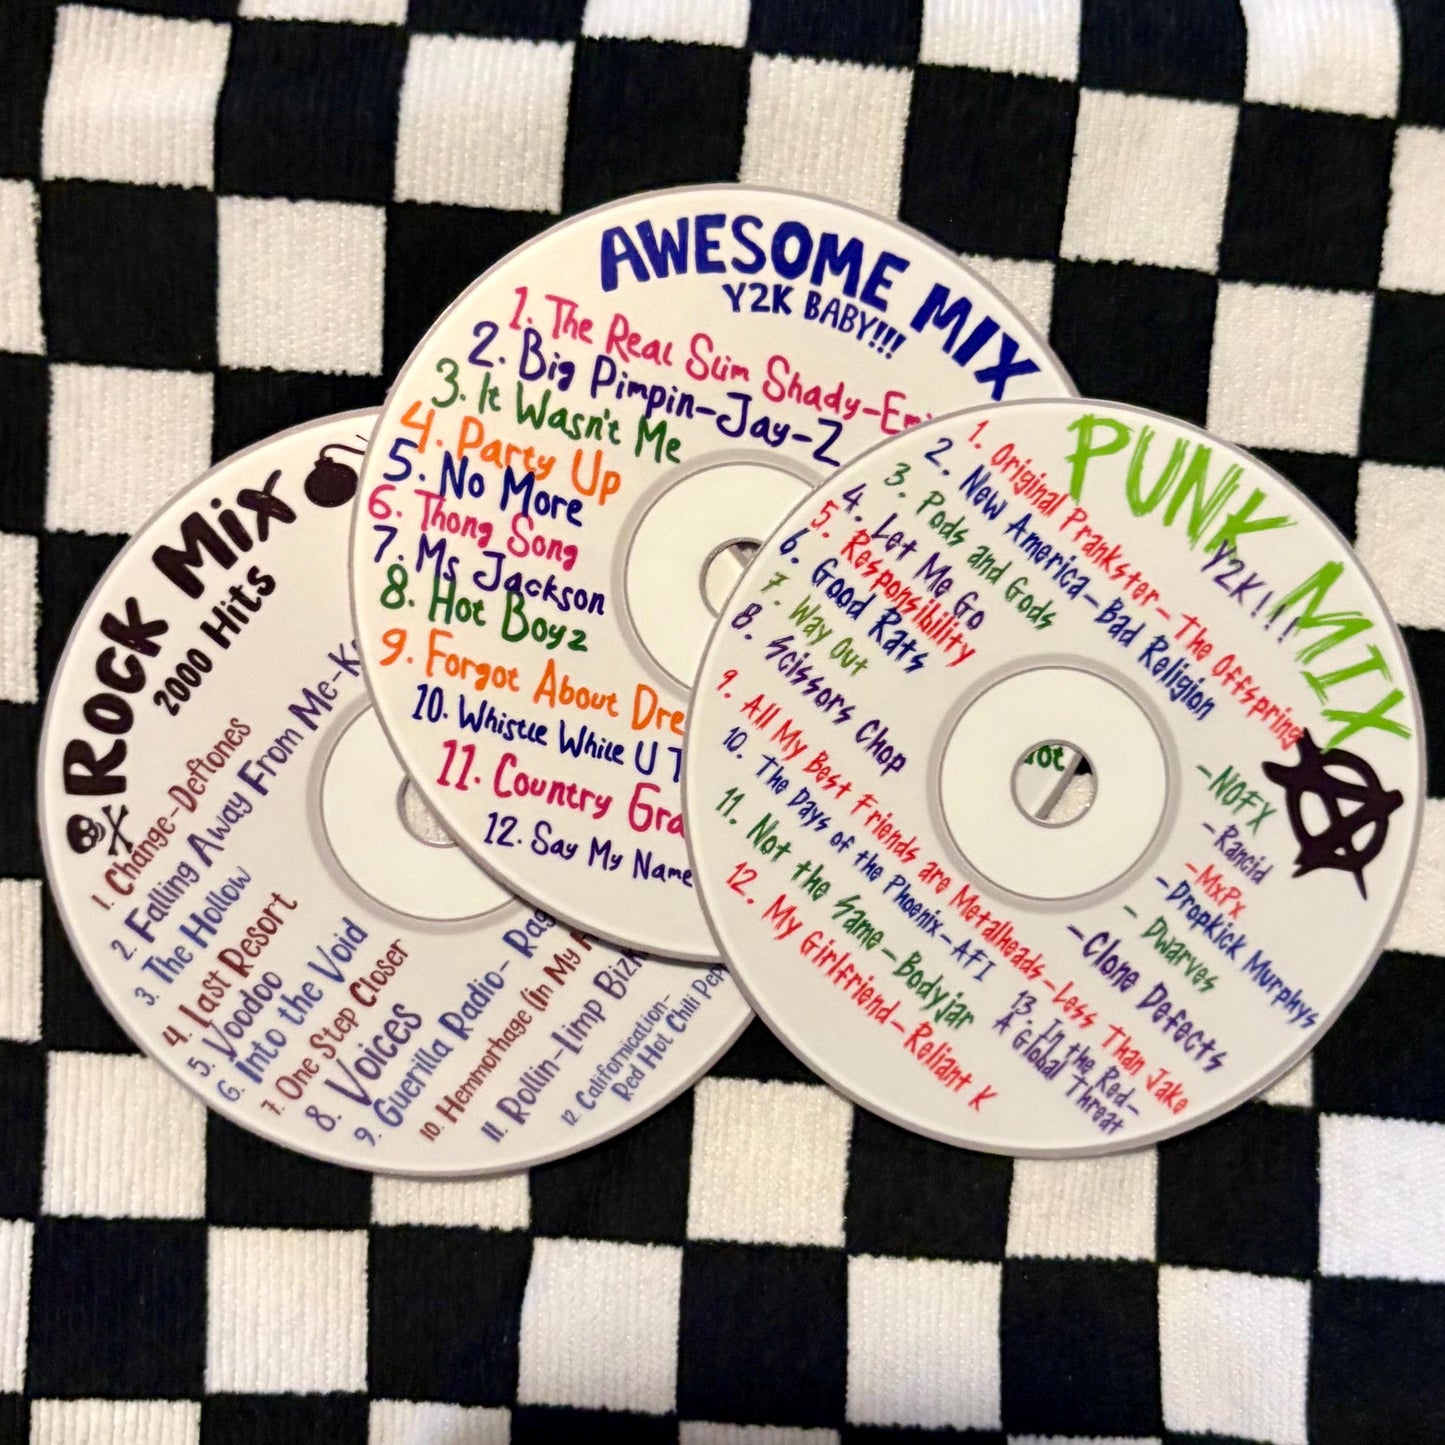 AWESOME MIX
Y2K BABY!!!
1. The Real Slim Shady-Em
2. Big Pimpin-Jay-Z
3. It Wasn't Me
4. Party Up
5. No More
6. Thong Song
7. Ms Jackson
8. Hot Boyz
9. Forgot About Dre
10. Whistle While U T
11. Country Gra
12. Say My Name
Rock Mix
2000 Hits
1. Change-Deftones
2. Falling Away From Me-K
3. The Hollow
4. Last Resort
5. Voodoo
6. Into the Void
7. One Step Closer
8. Voices
9. Guerilla Radio- Rag
10. Hemmorhage (In My
11. Rollin-Limp Bizk
12 Californication-
Red Hot Chili Pep
PUNK MIX
Y2K!!!
1. Original Prankster-The Offspring
2. New America-Bad Religion
3. Pods and Gods
4. Let Me Go
5. Responsibility
6. Good Rats
7. Way Out
8. Scissors Chop
9. All My Best Friends are Metalheads-Less Than Jake
10. The Days of the Phoenix-AFI
11. Not the Same-Bodyjar
12. My Girlfriend-Reliant K
13. In the Red-
A Global Threat
-NOFX
-Rancid
-MxPx
-Dropkick Murphys
- Dwarves
-Clone Defects
A